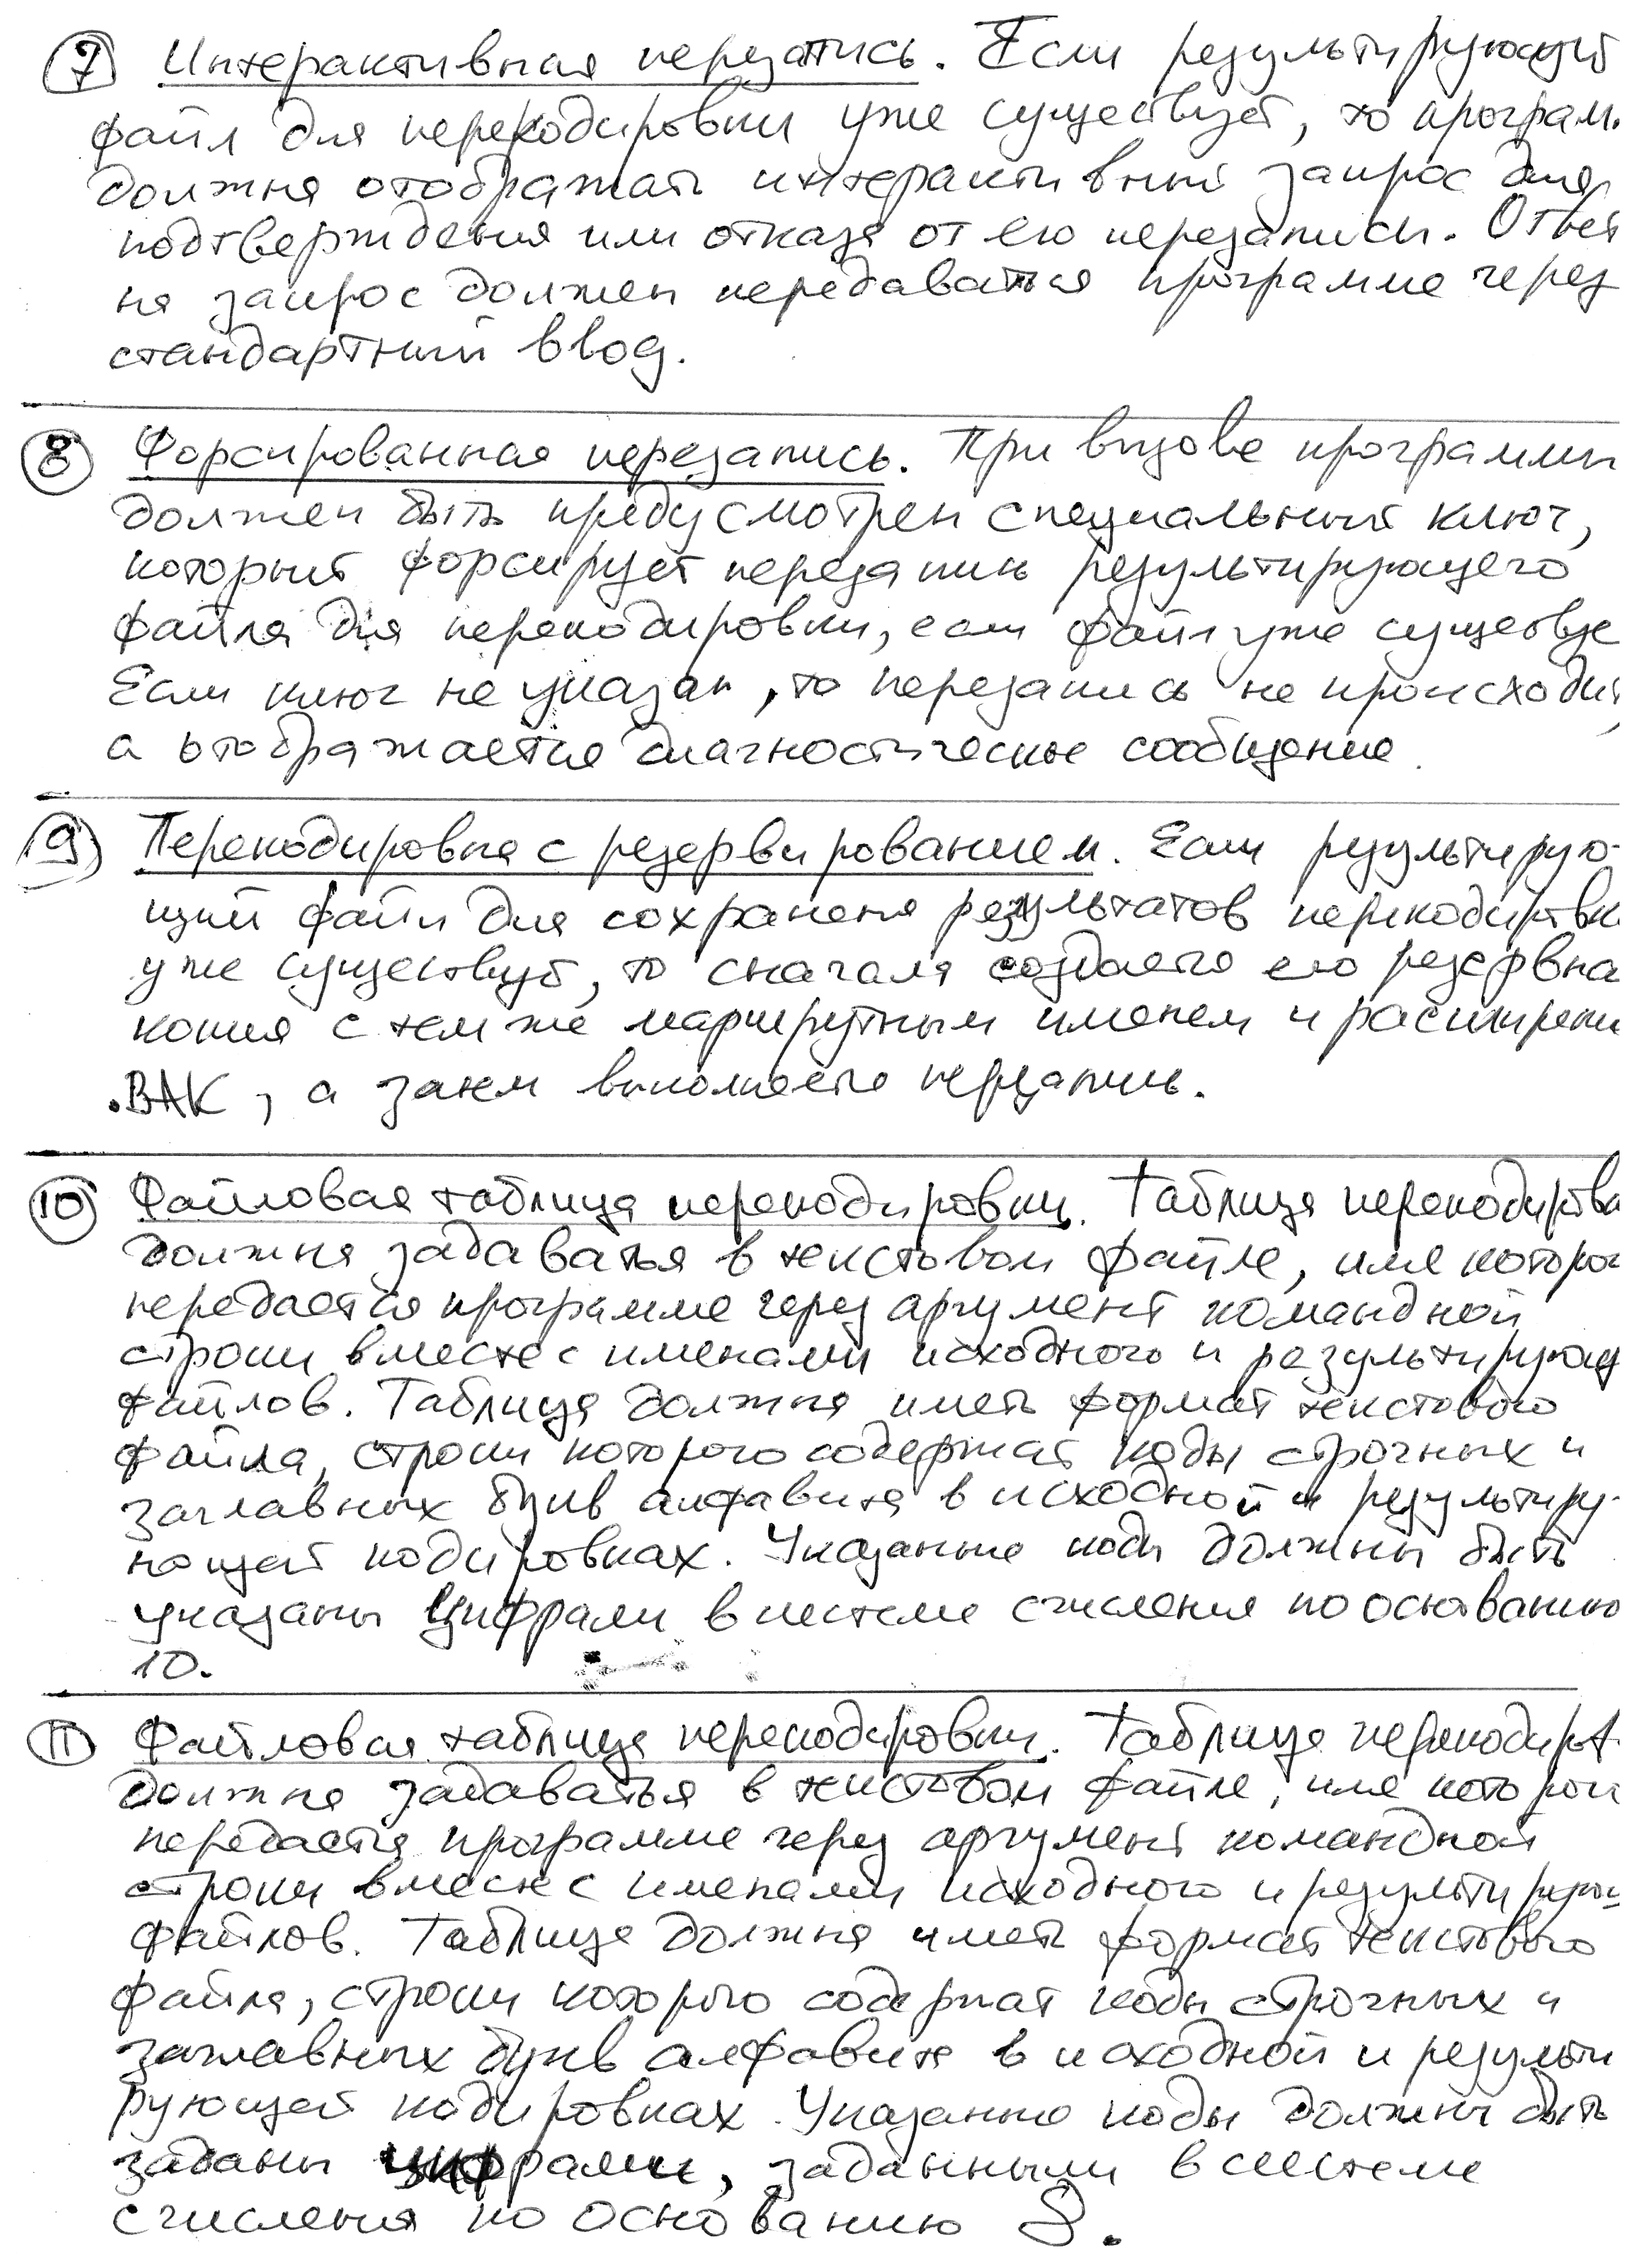 7 Интерактивная перезапись. Если результирующий
файл для перекодировки уже существует, то програм.
должна отображать интерактивный запрос для
подтверждения или отказа от его перезаписи. Ответ
на запрос должен передаваться программе через
стандартный ввод.
8 Форсированная перезапись. При вызове программы
должен быть предусмотрен специальный ключ,
который форсирует перезапись результирующего
файла для перекодировки, если файл уже существуе
Если ключ не указан, то перезапись не происходит,
а отображается диагностическое сообщение.
9 Перекодировка с резервированием. Если результирую-
щий файл для сохранения результатов перекодировк
уже существует, то сначала создается его резервна
копия с тем же маршрутным именем и расширени
.BAK, а затем выполняется перезапись.
10 Файловая таблица перекодировки. Таблица перекодировк
должна задаваться в текстовом файле, имя которог
передается программе через аргумент командной
строки вместе с именами исходного и результирующ
файлов. Таблица должна иметь формат текстового
файла, строки которого содержат коды строчных и
заглавных букв алфавита в исходной и результиру-
ющей кодировках. Указанные коды должны быть
указаны цифрами в системе счисления по основанию
10.
11 Файловая таблица перекодировки. Таблица перекодиров.
должна задаваться в текстовом файле, имя которог
передается программе через аргумент командной
строки вместе с именами исходного и результирующ
файлов. Таблица должна иметь формат текстового
файла, строки которого содержат коды строчных и
заглавных букв алфавита в исходной и результи
рующей кодировках. Указанные коды должны быть
заданы цифрами, заданными в системе
счисления по основанию 8.